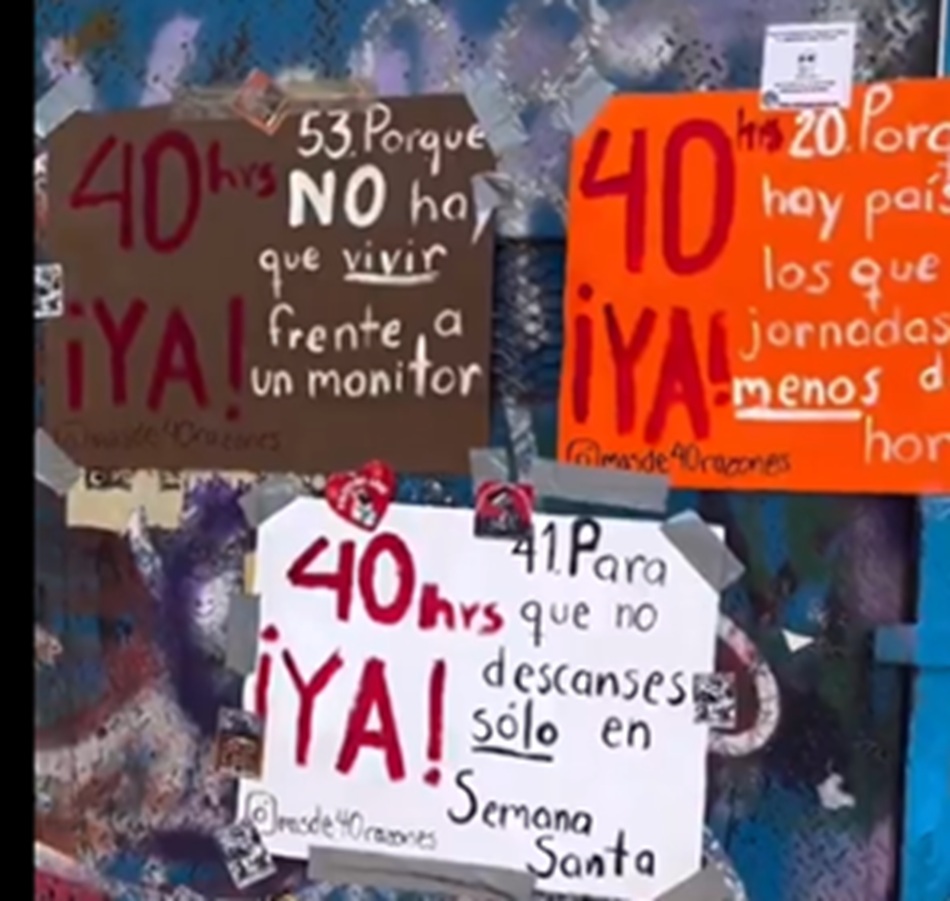 40hrs
¡YA!
53.Porque
NO hay
que vivir
frente a
un monitor
@masde40razones
40 hrs
¡YA!
20.Porq
hay país
los que
jornadas
menos d
hor
@masde40razones
40hrs
¡YA!
41.Para
que no
descanses
sólo en
Semana
Santa
@masde40razones